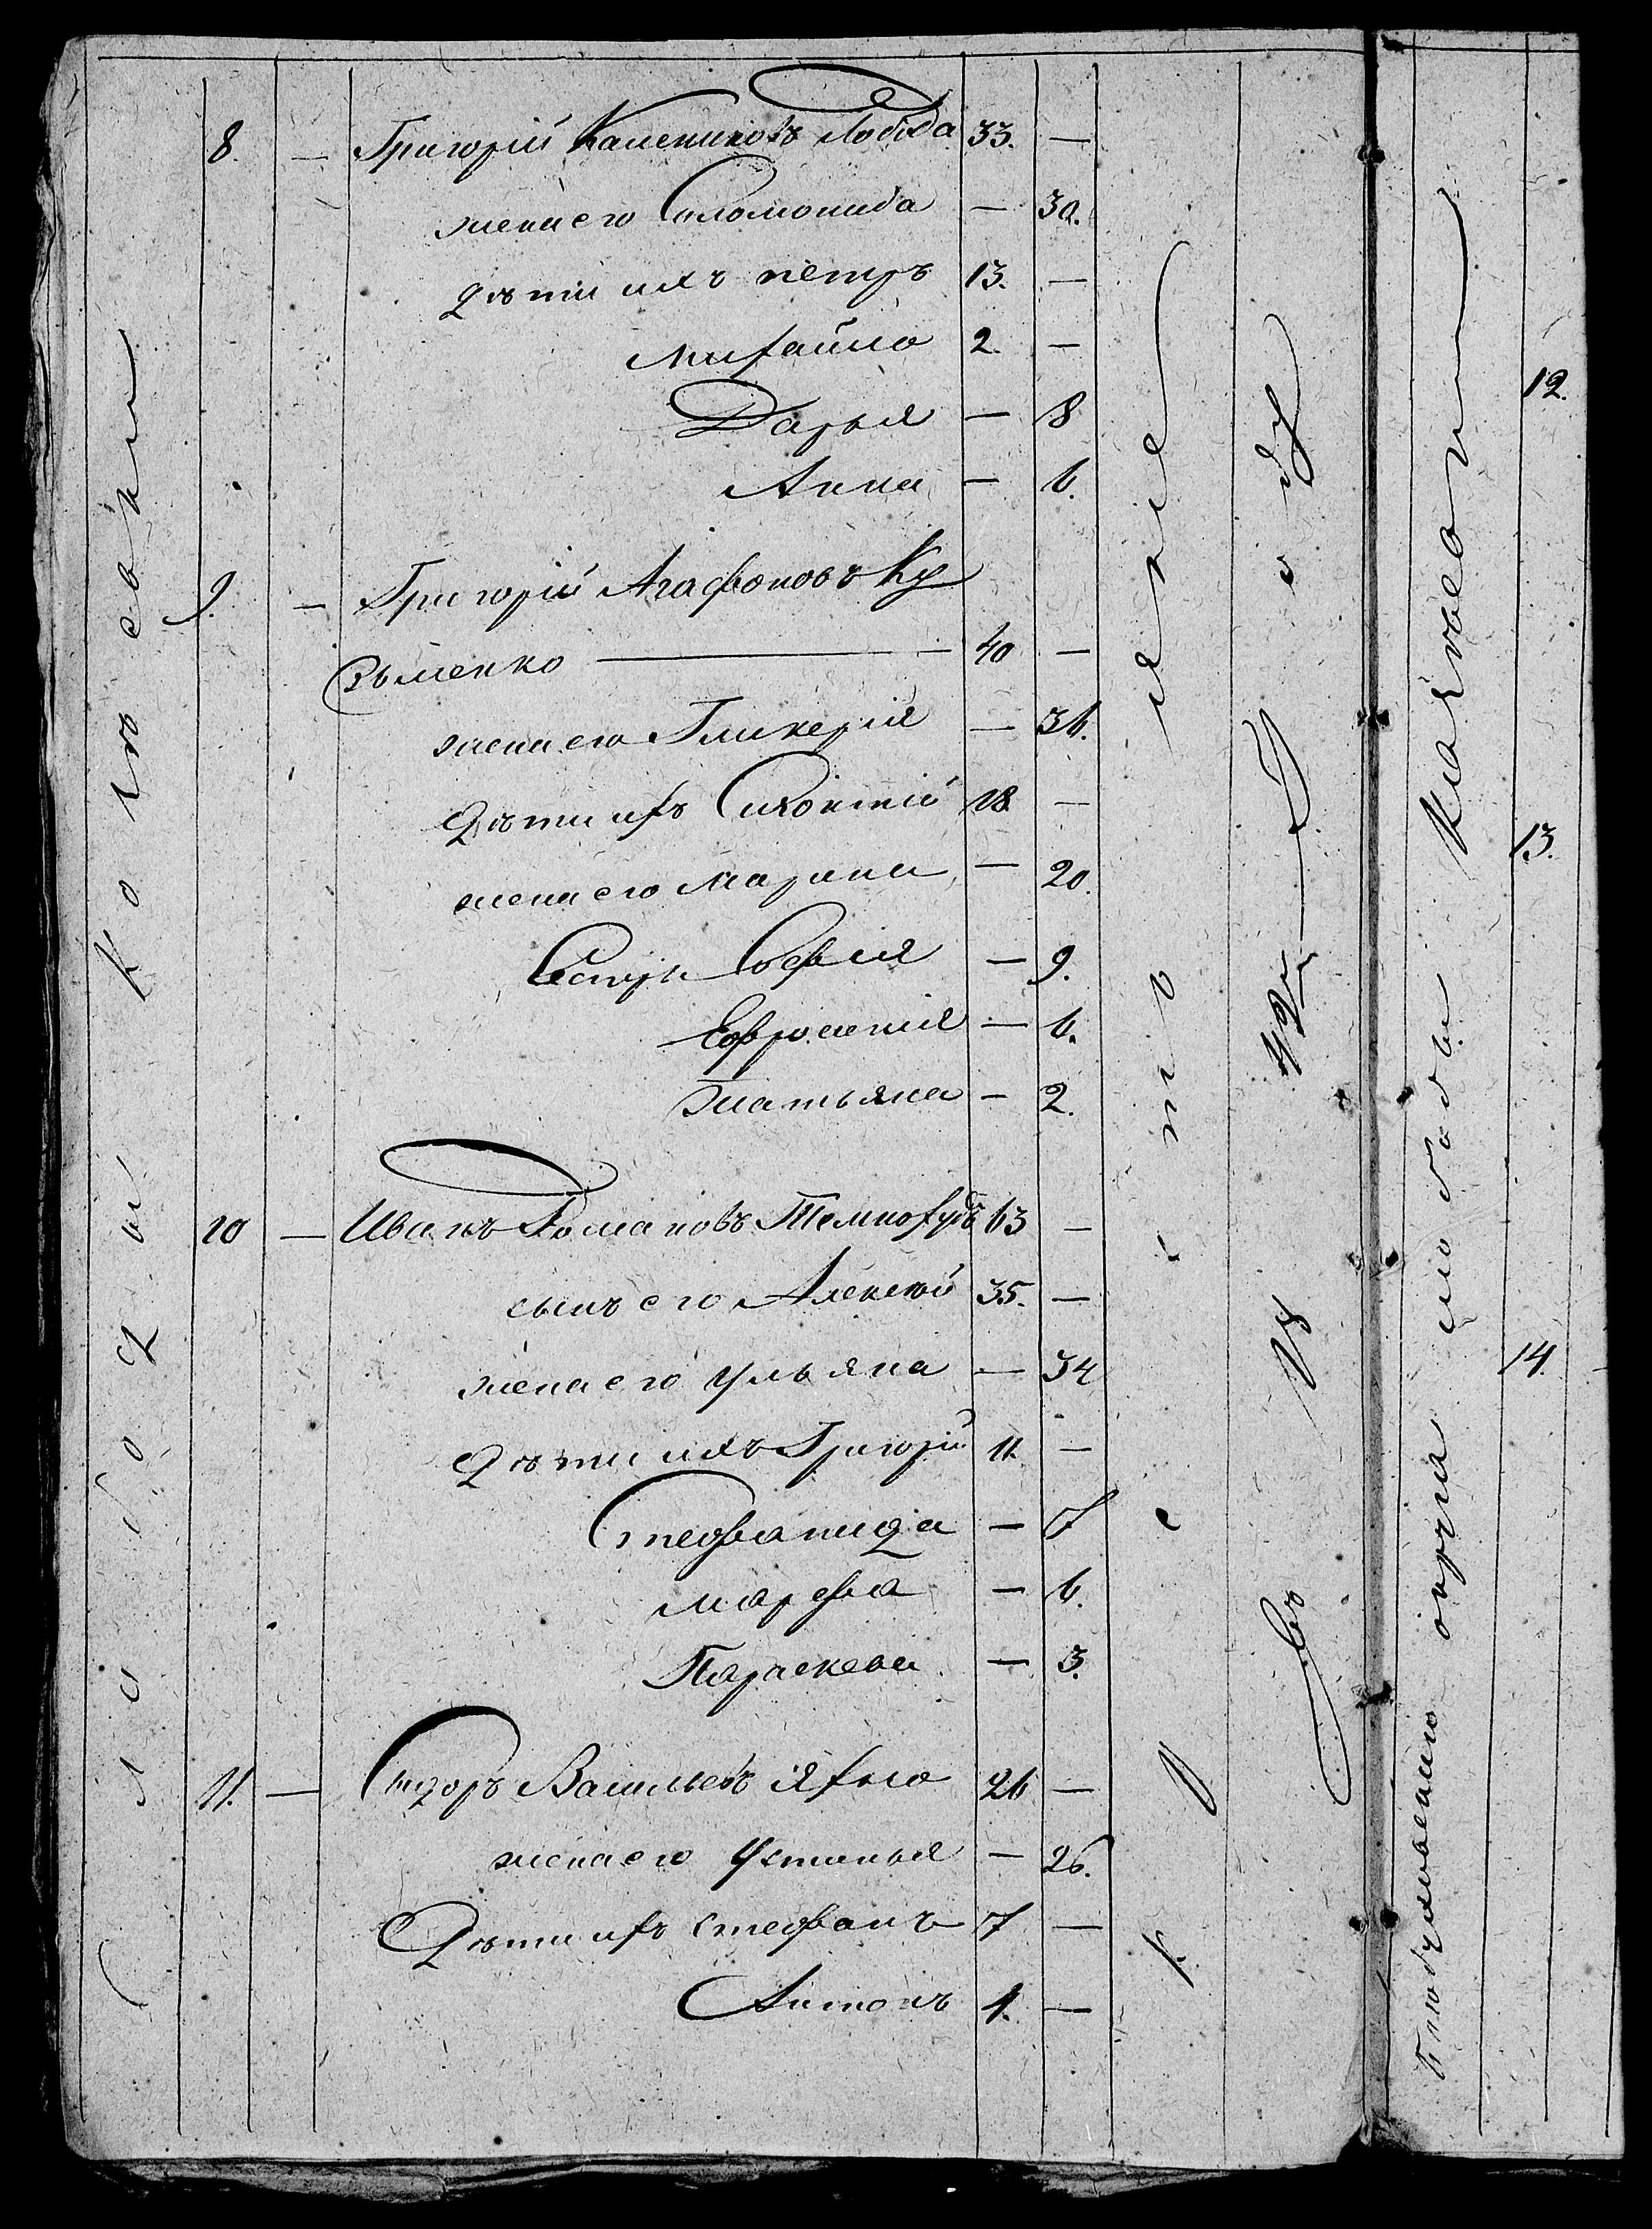 8. — Григорій Калениковъ Лобода 33. —
жена его Соломонида — 30.
дѣти ихъ петръ 13. —
михайло 2. —
Дарья — 8
Анна — 6.
9. — Григорій Агафоновъ Ку
зьменко — 40 —
жена его Гликерія — 36.
дѣти ихъ 18 —
жена его Марина — 20.
Сестры Софія — 9.
Евфросинія — 6.
татьяна — 2.
10 — Иванъ Романовъ 63 —
сынъ его Алексѣй 35. —
жена его Ульяна — 34
дѣти ихъ Григорій 11 —
Стефанида — 7
марфа — 6.
Параскева — 3.
11. — Сидоръ Васильевъ Яхно 26 —
жена его Устинья — 26.
Дѣти ихъ Стефанъ 7 —
Антонъ 4. —
слободы
въ 18 году
слободы
12.
13.
14.